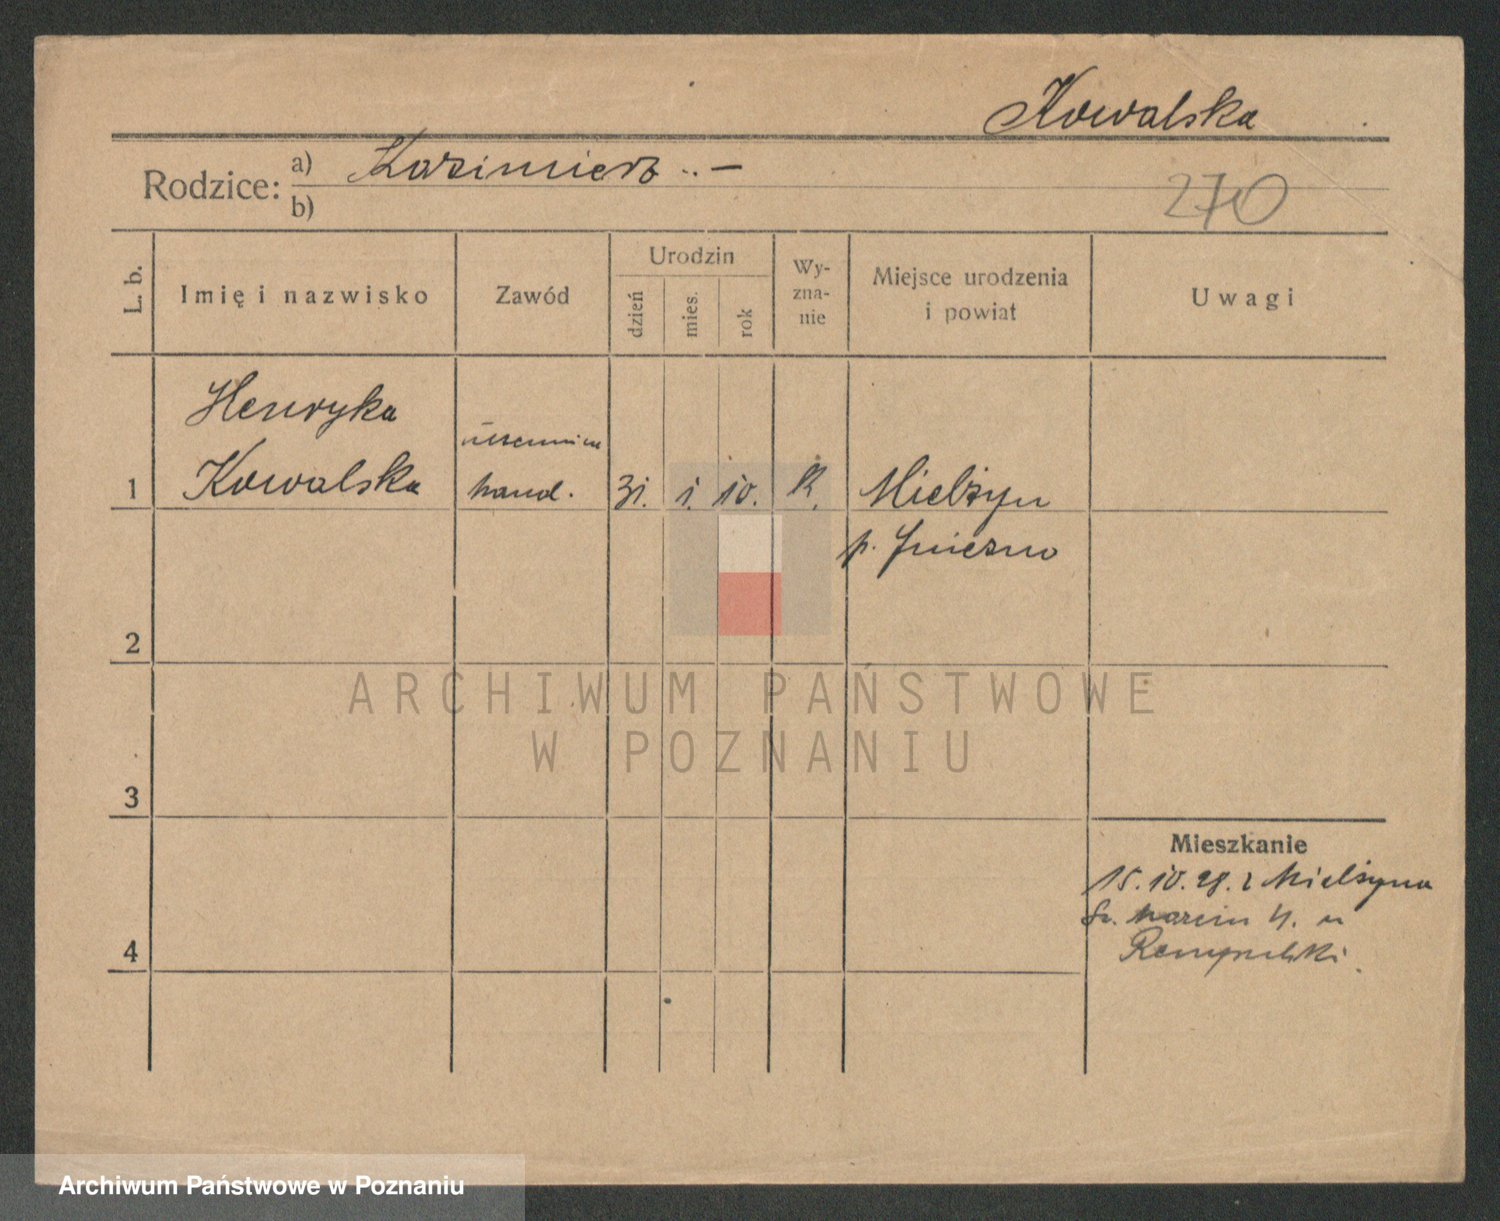 Kowalska
Rodzice: a) Kazimierz ..—
b)
270
L. b.
Imię i nazwisko
Zawód
Urodzin
dzień
mies.
rok
Wy-
zna-
nie
Miejsce urodzenia
i powiat
Uwagi
Henryka
Kowalska
uczennica
1
hand.
31. 1. 10. K. Mielżyn
p. Gniezno
2
ARCHIWUM PAŃSTWOWE
W POZNANIU
3
Mieszkanie
15.10.28. z Mielżyna
Św. Marcin 4. u
4
Archiwum Państwowe w Poznaniu